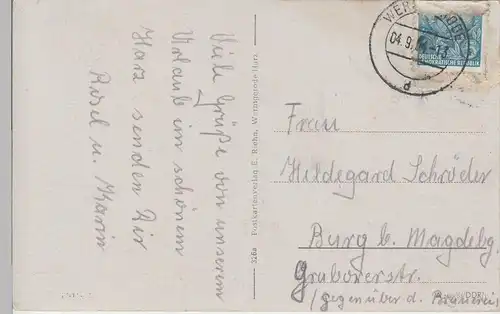 Viele Grüße von unserem
Urlaub im schönem
Harz senden Dir
Risel u. Karin
326a Postkartenverlag E. Riehn, Wernigerode-Harz
WER
04.9.
d
DEUTSCHE
DEMOKRATISCHE REPUBLIK
Frau
Hildegard Schröder
Burg b. Magdebg.
Grabowerstr.
(gegenüber d. Brauerei
(DDR)